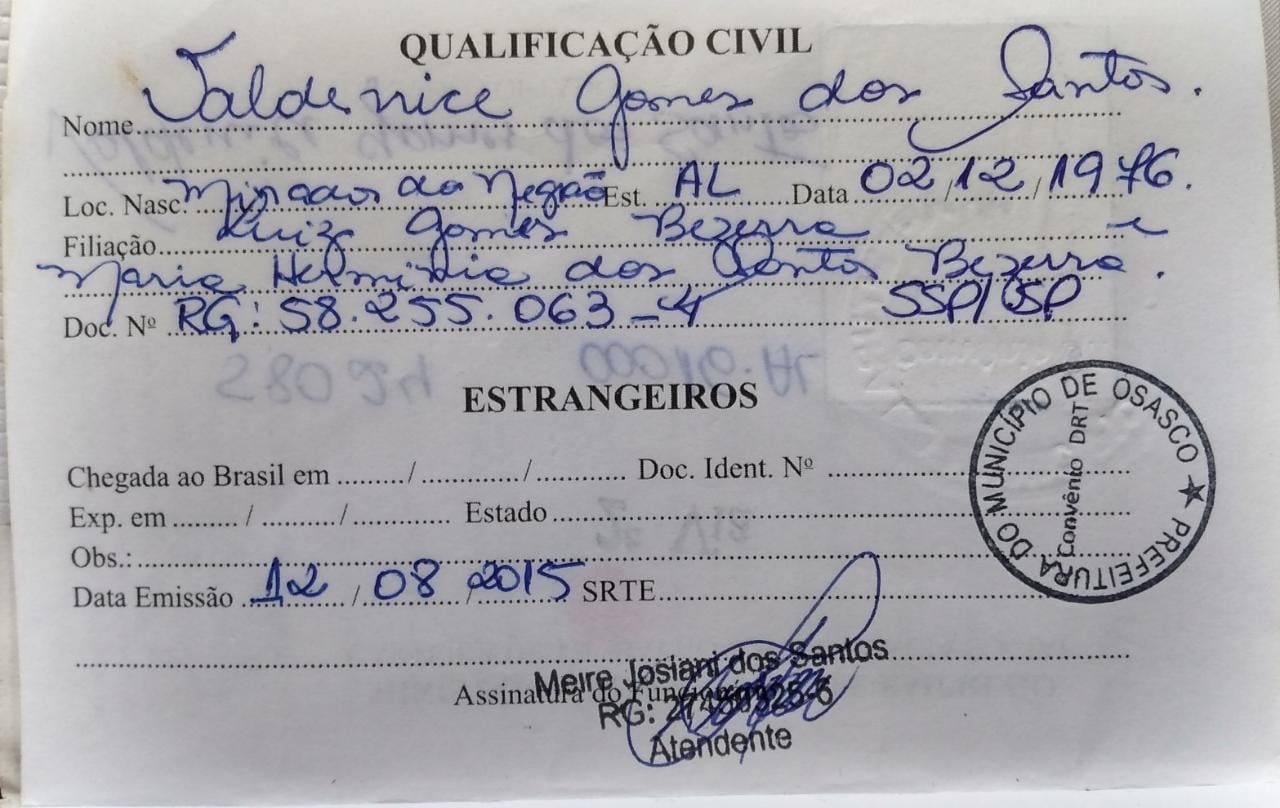 QUALIFICAÇÃO CIVIL
Nome Valdenice Gomes dos Santos.
Loc. Nasc. Minador do Negrão Est. AL Data 02/12/1976.
Filiação Luiz Gomes Bezerra e
Maria Helminia dos Santos Bezerra.
Doc. Nº RG: 58.255.063-4 SSP/SP
ESTRANGEIROS
Chegada ao Brasil em / / Doc. Ident. Nº
Exp. em / / Estado
Obs.:
Data Emissão 12/08/2015 SRTE
Assinatura do
Meire Josiani dos Santos
RG:
Atendente
PREFEITURA DO MUNICÍPIO DE OSASCO ★
Convênio DRT